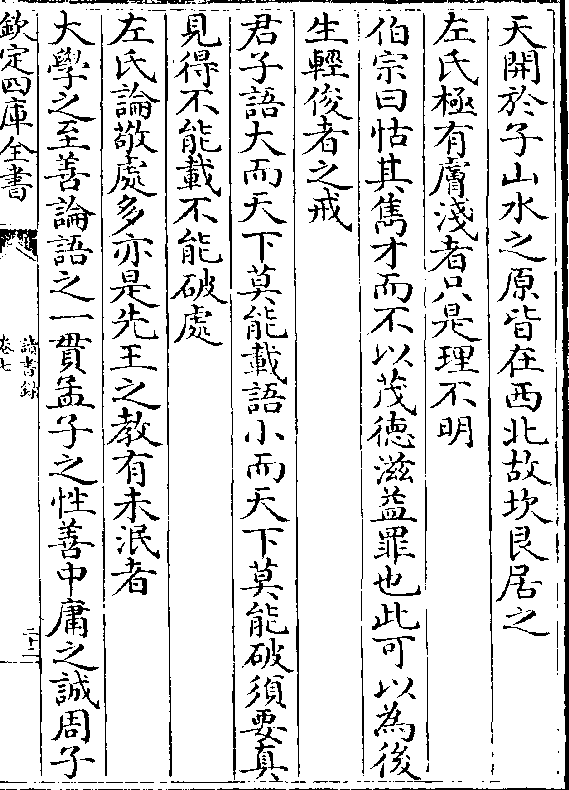 天開於子山水之原皆在西北故坎艮居之
左氏極有膚淺者只是理不明
伯宗曰怙其雋才而不以茂德滋益罪也此可以為後
生輕俊者之戒
君子語大而天下莫能載語小而天下莫能破須要真
見得不能載不能破處
左氏論敬處多亦是先王之教有未泯者
大學之至善論語之一貫孟子之性善中庸之誠周子
欽定四庫全書
讀書錄
卷七
二十二